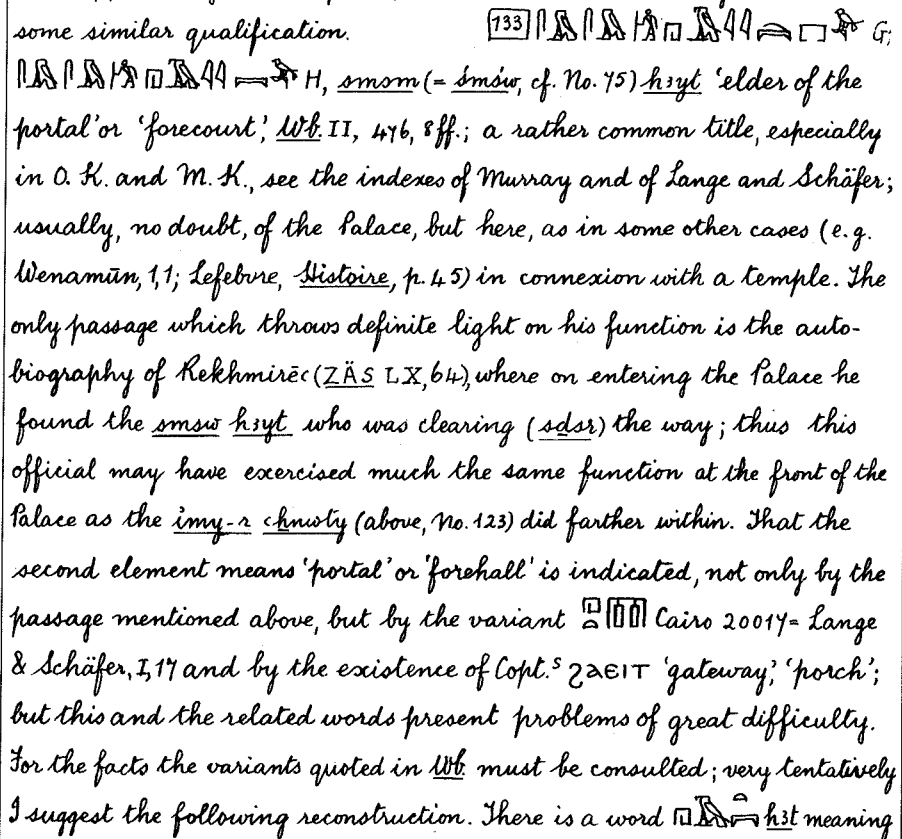 some similar qualification. 133 G;
H, smsm (= śmśw, cf. No. 75) hꜣyt 'elder of the
portal' or 'forecourt', Wb. II, 476, 8 ff.; a rather common title, especially
in O. K. and M. K., see the indexes of Murray and of Lange and Schäfer;
usually, no doubt, of the Palace, but here, as in some other cases (e. g.
Wenamūn, 1, 1; Lefebvre, Histoire, p. 45) in connexion with a temple. The
only passage which throws definite light on his function is the auto-
biography of Rekhmirēc (ZÄS LX, 64), where on entering the Palace he
found the smsw hꜣyt who was clearing (sḏsr) the way; thus this
official may have exercised much the same function at the front of the
Palace as the imy-r chnwty (above, No. 123) did farther within. That the
second element means 'portal' or 'forehall' is indicated, not only by the
passage mentioned above, but by the variant Cairo 20017 = Lange
& Schäfer, I, 17 and by the existence of Copt.ˢ ϩⲁⲉⲓⲧ 'gateway', 'porch';
but this and the related words present problems of great difficulty.
For the facts the variants quoted in Wb. must be consulted; very tentatively
I suggest the following reconstruction. There is a word hꜣt meaning